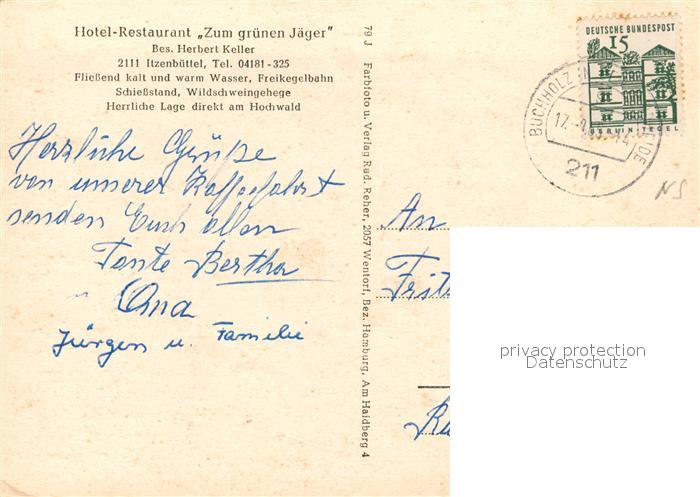 Hotel-Restaurant „Zum grünen Jäger"
Bes. Herbert Keller
2111 Itzenbüttel, Tel. 04181-325
Fließend kalt und warm Wasser, Freikegelbahn
Schießstand, Wildschweingehege
Herrliche Lage direkt am Hochwald
Herzliche Grüße
von unserer Kaffeefahrt
senden Euch allen
Tante Bertha
Oma
Jürgen u. Familie
79 J Farbfoto u. Verlag Rud. Reher, 2057 Wentorf, Bez. Hamburg, Am Haidberg 4
DEUTSCHE BUNDESPOST
15
BERLIN-TEGEL
BUCHHOLZ
17.
211
NS
An
privacy protection
Datenschutz